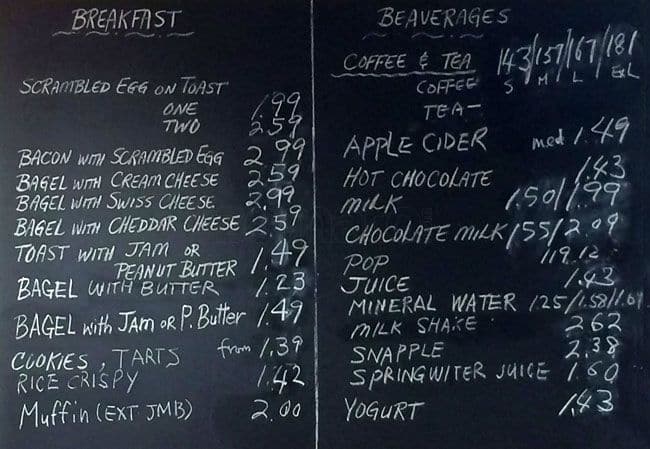 BREAKFAST
SCRAMBLED EGG ON TOAST
ONE 1.99
TWO 2.59
BACON WITH SCRAMBLED EGG 2.99
BAGEL WITH CREAM CHEESE 2.59
BAGEL WITH SWISS CHEESE 2.99
BAGEL WITH CHEDDAR CHEESE 2.59
TOAST WITH JAM OR
PEANUT BUTTER 1.49
BAGEL WITH BUTTER 1.23
BAGEL with JAM OR P. Butter 1.49
COOKIES, TARTS from 1.39
RICE CRISPY 1.42
Muffin (EXT JMB) 2.00
BEAVERAGES
COFFEE & TEA 143/157/167/181
COFFEE S M L ExL
TEA—
APPLE CIDER med 1.49
HOT CHOCOLATE 1.43
MILK 1.50/1.99
CHOCOLATE MILK 155/2.09
POP 119.12
JUICE 1.43
MINERAL WATER 125/1.58/1.61
MILK SHAKE 2.62
SNAPPLE 2.38
SPRINGWITER JUICE 1.60
YOGURT 1.43